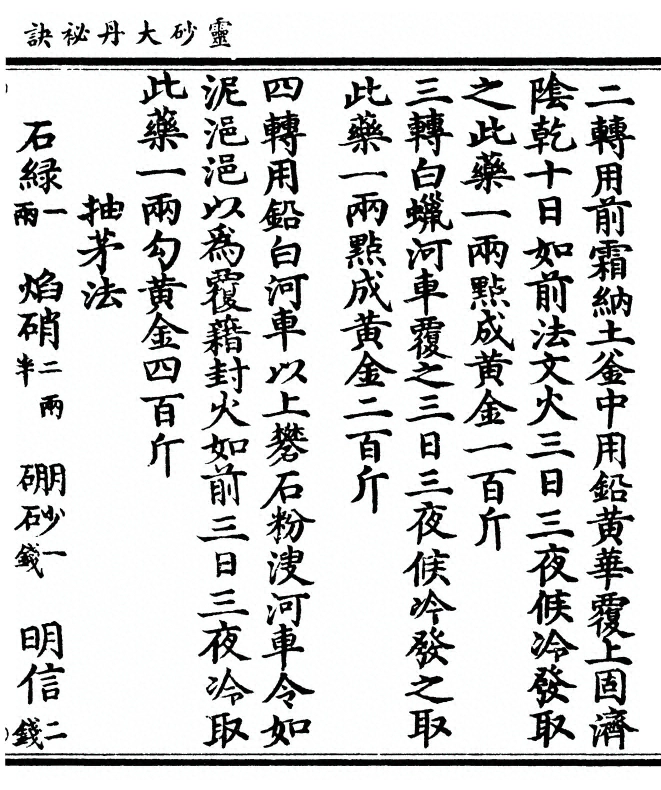 靈砂大丹祕訣
二轉用前霜納土釜中用鉛黃華覆上固濟
陰乾十日如前法文火三日三夜候冷發取
之此藥一兩點成黃金一百斤
三轉白蠟河車覆之三日三夜候冷發之取
此藥一兩點成黃金二百斤
四轉用鉛白河車以上礬石粉溲河車令如
泥浥浥以為覆藉封火如前三日三夜冷取
此藥一兩勾黃金四百斤
抽茅法
石緑一兩 焰硝二兩半 硼砂一錢 明信二錢